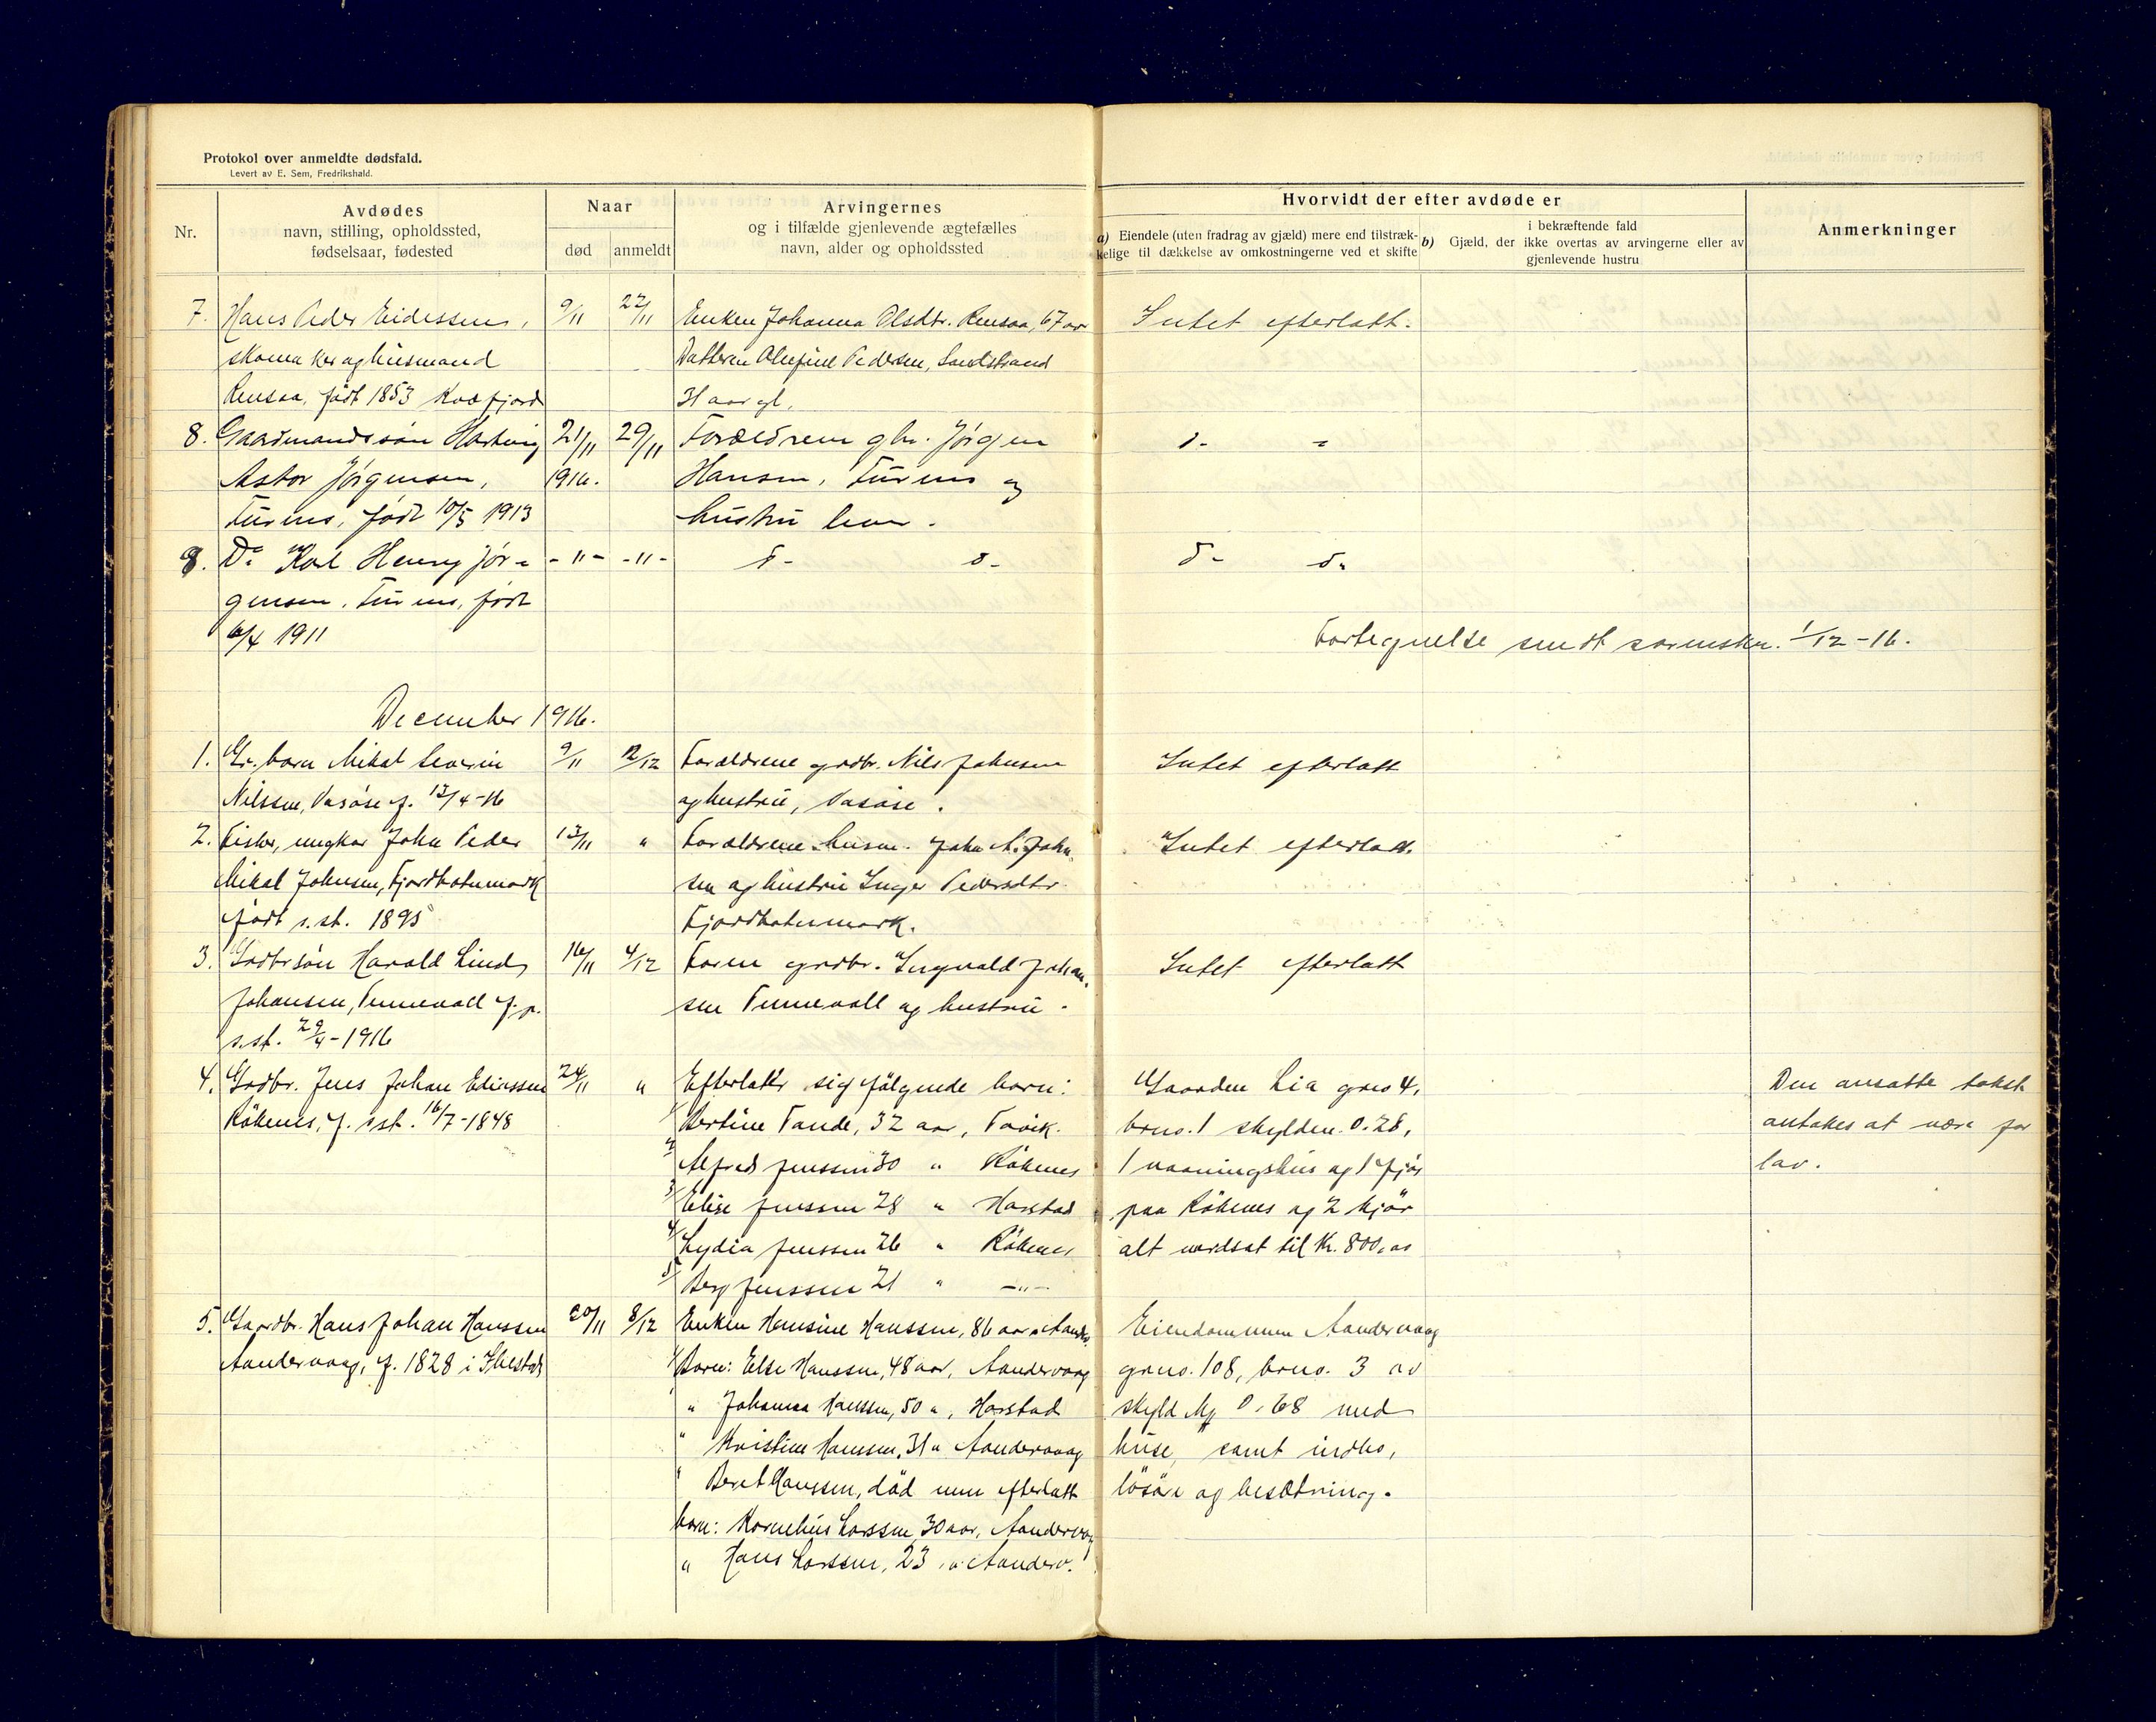 Protokol over anmeldte dødsfald.
Levert av E. Sem, Fredrikshald.
Nr.
Avdødes
navn, stilling, opholdssted,
fødselsaar, fødested
Naar
død
anmeldt
Arvingernes
og i tilfælde gjenlevende ægtefælles
navn, alder og opholdssted
Hvorvidt der efter avdøde er
a) Eiendele (uten fradrag av gjæld) mere end tilstræk-
kelige til dækkelse av omkostningerne ved et skifte
i bekræftende fald
b) Gjæld, der ikke overtas av arvingerne eller av
gjenlevende hustru
Anmerkninger
7. Hans Peder Eidessen, 9/11 27/11 Enken Johanna Olsdtr. Rensaa, 67 aar Intet efterlatt.
skomaker og husmand Datteren Olufine Pedersen, Sandstrand
Rensaa, født 1853 Kvæfjord 31 aar gl.
8. Gaardmandssøn Hartvig 21/11 29/11 Forældrene gbr. Jørgen
Astor Jørgensen, 1916. Hansen, og
født 10/5 1913 hustru lever.
9. Do Karl Henry Jør- -"- -"-
gensen, født
6/4 1911
Fortegnelse sendt sorenskr. 1/12-16.
December 1916.
1. Gr. barn Mikal Severin 9/11 12/12 Forældrene grdbr. Nils Johnsen Intet efterlatt
Nilssen, f. 13/4-16 og hustru,
2. Fisker, ungkar John Peder 13/11 " Forældrene husm. John A. John- Intet efterlatt.
Mikal Johnsen, Fjordbotnmark sen og hustru Inger Pedersdtr.
født s.st. 1895 Fjordbotnmark.
3. Grdbrsøn Harald Lind 16/11 4/12 Faren grdbr. Ingvald Johan- Intet efterlatt
Johansen, Tennevoll f. p. sen Tennevoll og hustru.
s.st. 29/4-1916
4. Grdbr. Jens Johan Edinssen 24/11 " Efterlatt sig følgende barn: Gaarden Lia gno 4, Den ansatte takst
Røkenes, f. sst. 16/7-1848 1/ Bertine Tande, 32 aar, brno. 1 skylden 0.28, antakes at være for
2/ Alfred Jenssen 30 " Røkenes 1 vaaningshus og 1 fjøs lav.
3/ Elise Jenssen 28 " Harstad paa Røkenes og 2 kjør
4/ Lydia Jenssen 26 " Røkenes alt værdsat til Kr. 800,00
5/ Berg Jenssen 21 " -"-
5. Gaardbr. Hans Johan Hanssen 20/11 8/12 Enken Hansine Hanssen, 86 aar Aanderv. Eiendommen Aandervaag
Aandervaag, f. 1828 i Ibestad 1/ Barn: Else Hanssen, 48 aar, Aandervaag gno. 108, brno. 3 av
" Johanna Hanssen, 50 ", Harstad skyld Mk 0.68 med
" Kristine Hanssen, 31 " Aandervaag huse, samt indbo,
" Beret Hanssen, død men efterlatt løsøre og besætning.
barn: Kornelius Larssen 30 aar, Aandervaag
" Hans Larssen, 23 " Aanderv.